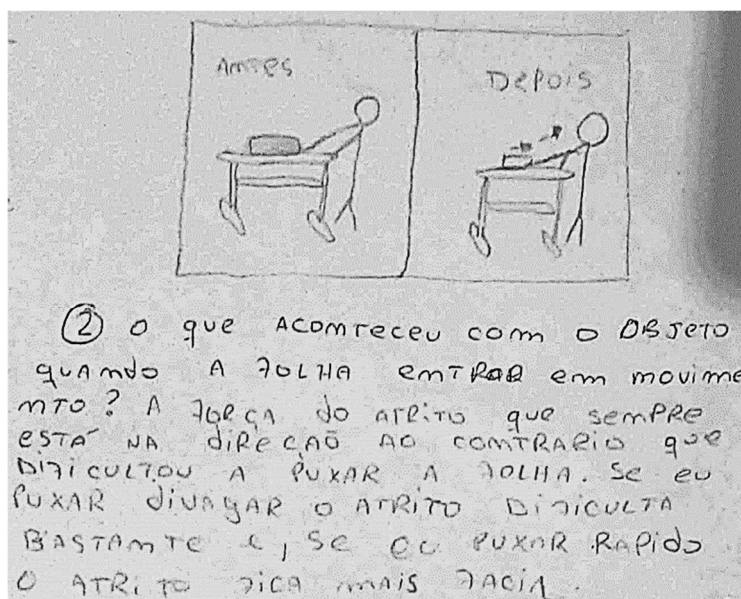 AMTES
DEPOIS
② O que ACOMTECEU COM O OBJETO
quANdo A FOLHA emTRAR em movime
MTO? A FORÇA do ATRITO que sempre
ESTÁ NA diReçÃO AO COMTRARIO que
DIFICULTOU A PUXAR A FOLHA. Se eu
PUXAR divagar o ATRITO DIFICULTA
BASTAMTE e, Se eu PUXAR RAPIdo
O ATRITO FICA mais FACIL.